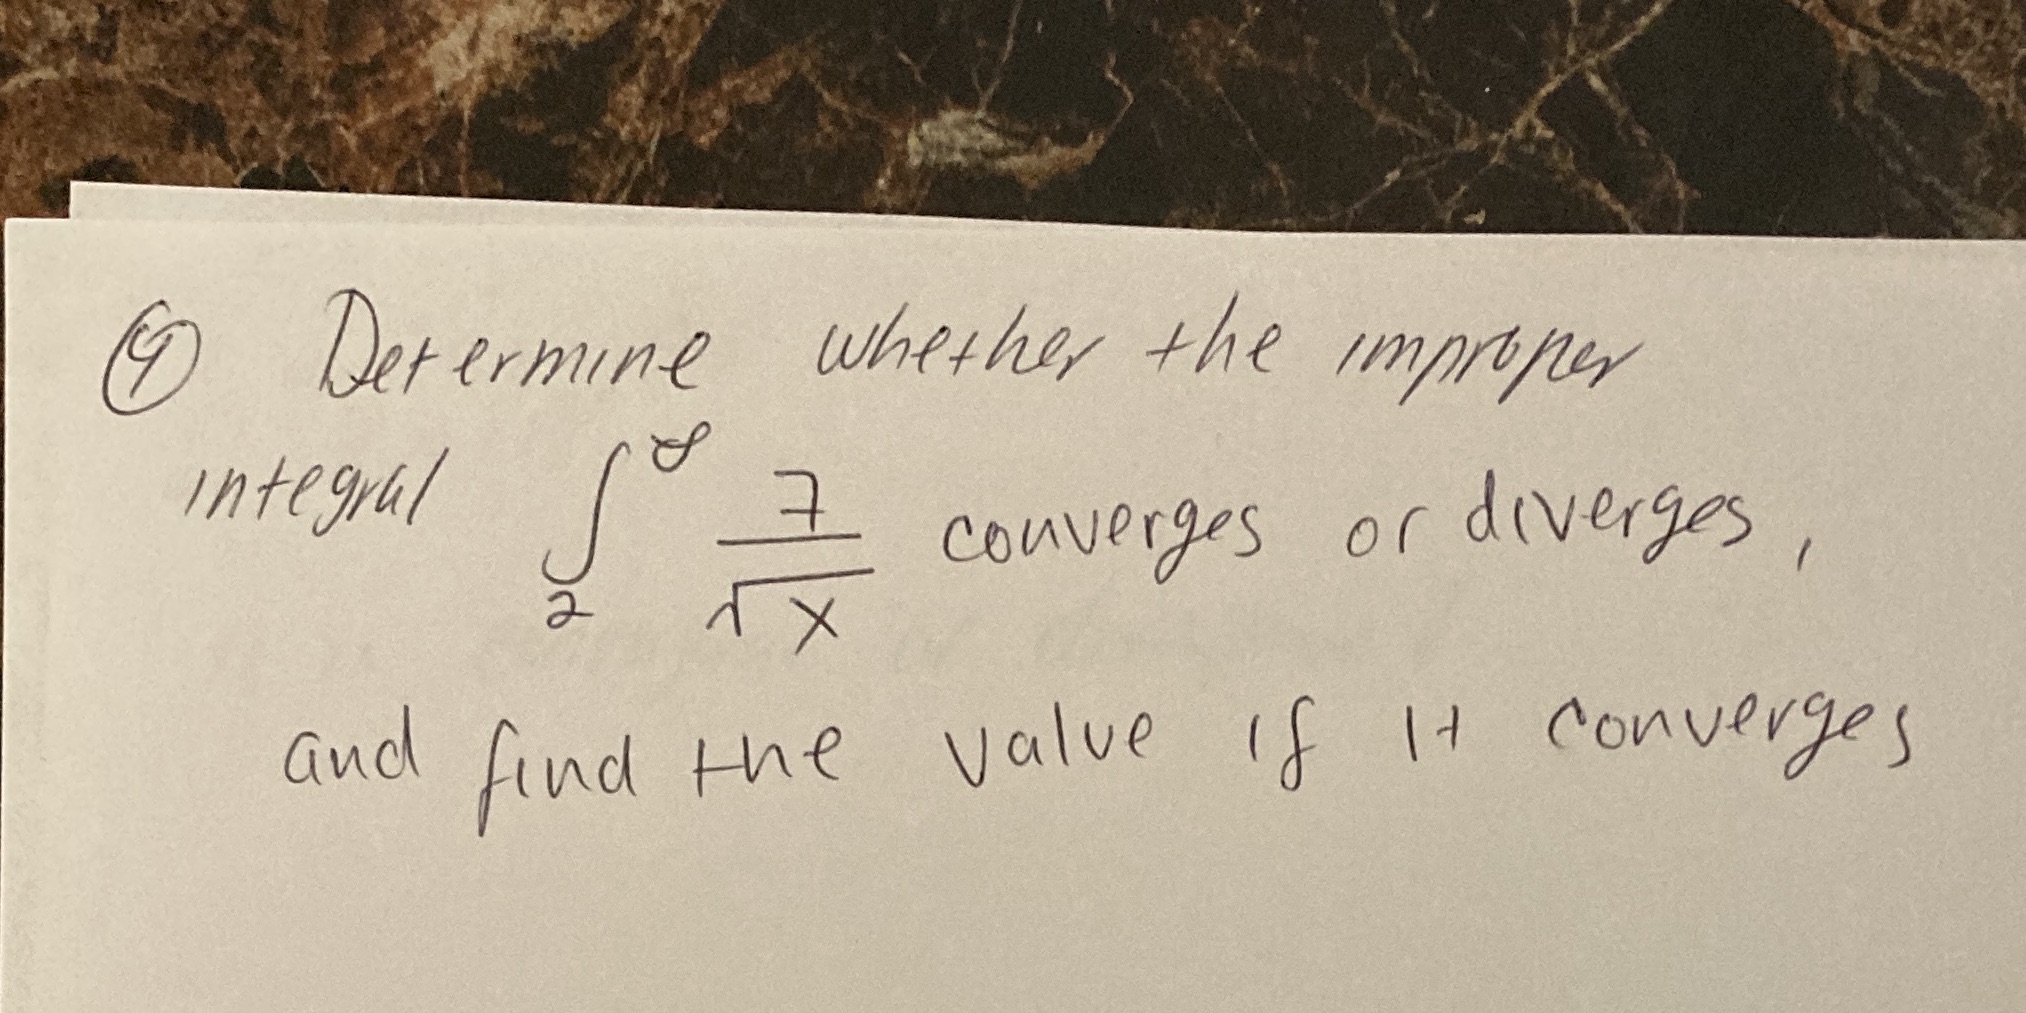 ④ Determine whether the improper
integral ∫₂^∞ 7/√x converges or diverges,
and find the value if it converges